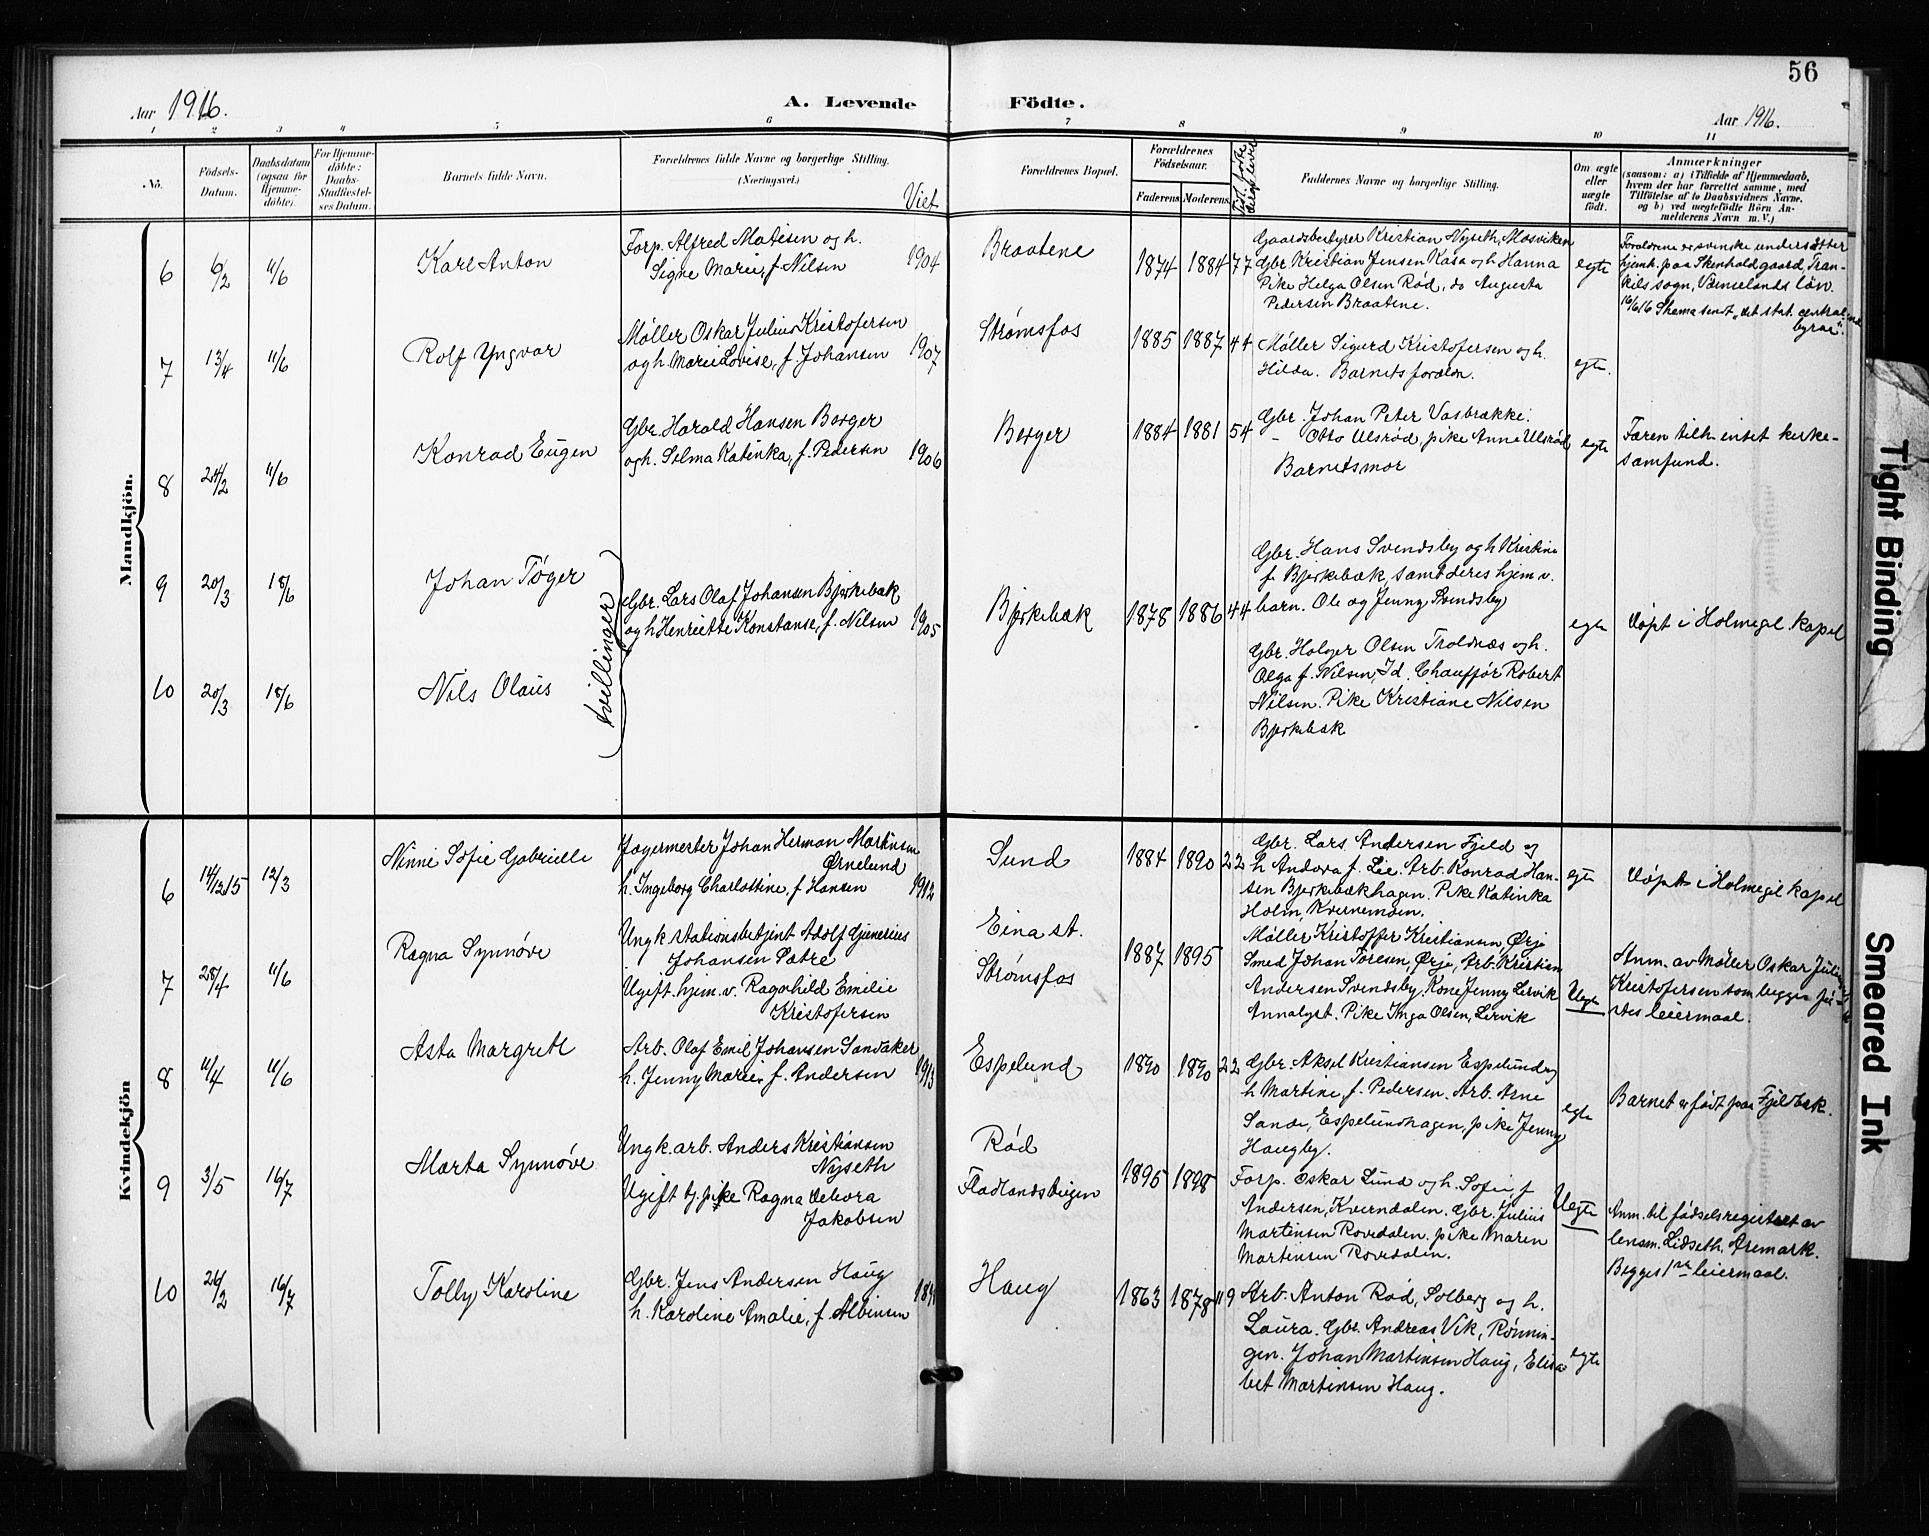 56
Aar 1916.
A. Levende Födte.
Aar 1916.
1 2 3 4 5 6 7 8 9 10 11
No.
Födsels-Datum.
Daabsdatum (ogsaa for Hjemme-döbte).
For Hjemme-döbte: Daabs-Stadfæstel-ses Datum.
Barnets fulde Navn.
Forældrenes fulde Navne og borgerlige Stilling.
(Næringsvei.)
Viet
Forældrenes Bopæl.
Forældrenes Födselsaar.
Faderens Moderens
Faddernes Navne og borgerlige Stilling.
Om ægte eller uægte födt.
Anmærkninger
(saasom: a) i Tilfælde af Hjemmedaab,
hvem der har forrettet samme, med
Tilföielse af to Daabsvidners Navne.
og b) ved uægtefödte Börn An-
melderens Navn m. V.)
Mandkjön.
6 6/2 11/6 Karl Anton
Forp. Alfred Matisen og h.
Signe Marie, f. Nilsen 1904
Braatene 1874 1884 7 7
Gaardsbestyrer Kristian Nyseth, Mosviken
Gbr. Kristian Jensen Kasa og h. Hanna
Pike Helga Olsen Rød, do Augusta
Pedersen Braatene.
egte
Foraldrene er svenske undersåtter
hjemh. paa Skenholdgaard, Tran-
kils sogn, Värmelands län.
16/6 16 Skema sendt „det stat. central
byraa".
7 13/4 11/6 Rolf Yngvar
Møller Oskar Julius Kristofersen
og h. Marie Lovise, f. Johansen 1907
Strømsfos 1885 1887 4 4
Møller Sigurd Kristofersen og h.
Hilda. Barnets foræld.
egte.
8 24/2 11/6 Konrad Eugen
Gbr. Harald Hansen Berger
og h. Selma Katinka, f. Pedersen 1906
Berger 1884 1881 5 4
Gbr. Johan Peter Vasbrække.
- Otto Ulsrød, pike Anna Ulsrød
Barnets mor
egte
Faren tilh. intet kirke-
samfund.
9 20/3 18/6 Johan Tøger
10 20/3 18/6 Nils Olaus
tvillinger
Gbr. Lars Olaf Johansen Bjerkebæk
og h. Henriette Konstanse, f. Nilsen 1905
Bjerkebæk 1878 1886 4 4
Gbr. Hans Svendsby og h. Kristine
f. Bjerkebæk, samt deres hjem v.
barn. Ole og Jenny Svendsby
Gbr. Holger Olsen Troldnæs og h.
Olga f. Nilsen, Id. Chauffør Robert
Nilsen. Pike Kristiane Nilsen
Bjerkebæk
egte
Døpt i Holmegil kapel
Kvindekjön
6 14/12 15 12/3 Ninni Sofie Gabrielle
Jagermester Johan Herman Martinsen
Ørnelund
h. Ingeborg Charlottine, f. Hansen 1912
Sund 1884 1890 2 2
Gbr. Lars Andersen Fjeld og
h. Andora f. Lie. Arb. Konrad Han-
sen Bjerkebækhagen. Pike Katinka
Holm, Kvernemoen.
egte
Døpt i Holmegil kapel
7 28/4 11/6 Ragna Synnøve
Ungk. stationsbetjent Adolf Gjenerius
Johansen Sætre
Ugift. hjem. v. Ragnhild Emilie
Kristofersen
Eina st.
Strømsfos
1887 1895
Møller Kristoffer Kristiansen, Ørje
Smed Johan Toresen, Ørje, Arb. Kristian
Andersen Svendsby. Kone Jenny Lervik
Annalyst. Pike Inga Olsen, Lervik
Uegte
Anm. av Møller Oskar Julius
Kristofersen som begges før-
stes leiermaal.
8 11/4 11/6 Asta Margrete
Arb. Olaf Emil Johansen Sandaker
h. Jenny Marie, f. Andersen 1913
Espelund 1890 1890 2 2
Gbr. Aksel Kristiansen Espelund og
h. Martine, f. Pedersen. Arb. Arne
Sande, Espelundhagen, pike Jenny
Haugby.
egte
Barnet er født paa Fjelbæk.
9 3/5 16/7 Marta Synnøve
Ungk. arb. Anders Kristiansen
Nyseth
Ugift tj. pike Ragna Debora
Jakobsen
Rød
Fladlandsteigen
1895 1898
Forp. Oskar Lund og h. Sofie f
Andersen, Kverndalen. Gbr. Julius
Martinsen Rovedalen. pike Maren
Martinsen Rovedalen.
Uegte
Anm. til fødselsregistret av
lensm. Lidseth, Aremark.
Begges 1ste leiermaal.
10 26/2 16/7 Tolly Karoline
Gbr. Jens Andersen Haug
h. Karoline Amalie, f. Albinsen
Haug 1863 1878 11 9
Arb. Anton Rød, Solberg og h.
Laura. Gbr. Andreas Vik, Rønnin-
gen. Johan Martinsen Haug, Elisa-
bet Martinsen Haug.
egte
Tight Binding
Smeared Ink